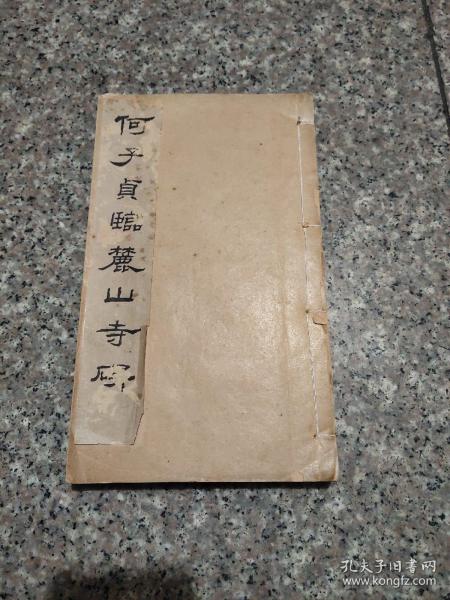 何子貞臨麓山寺碑
孔夫子旧书网
www.kongfz.com